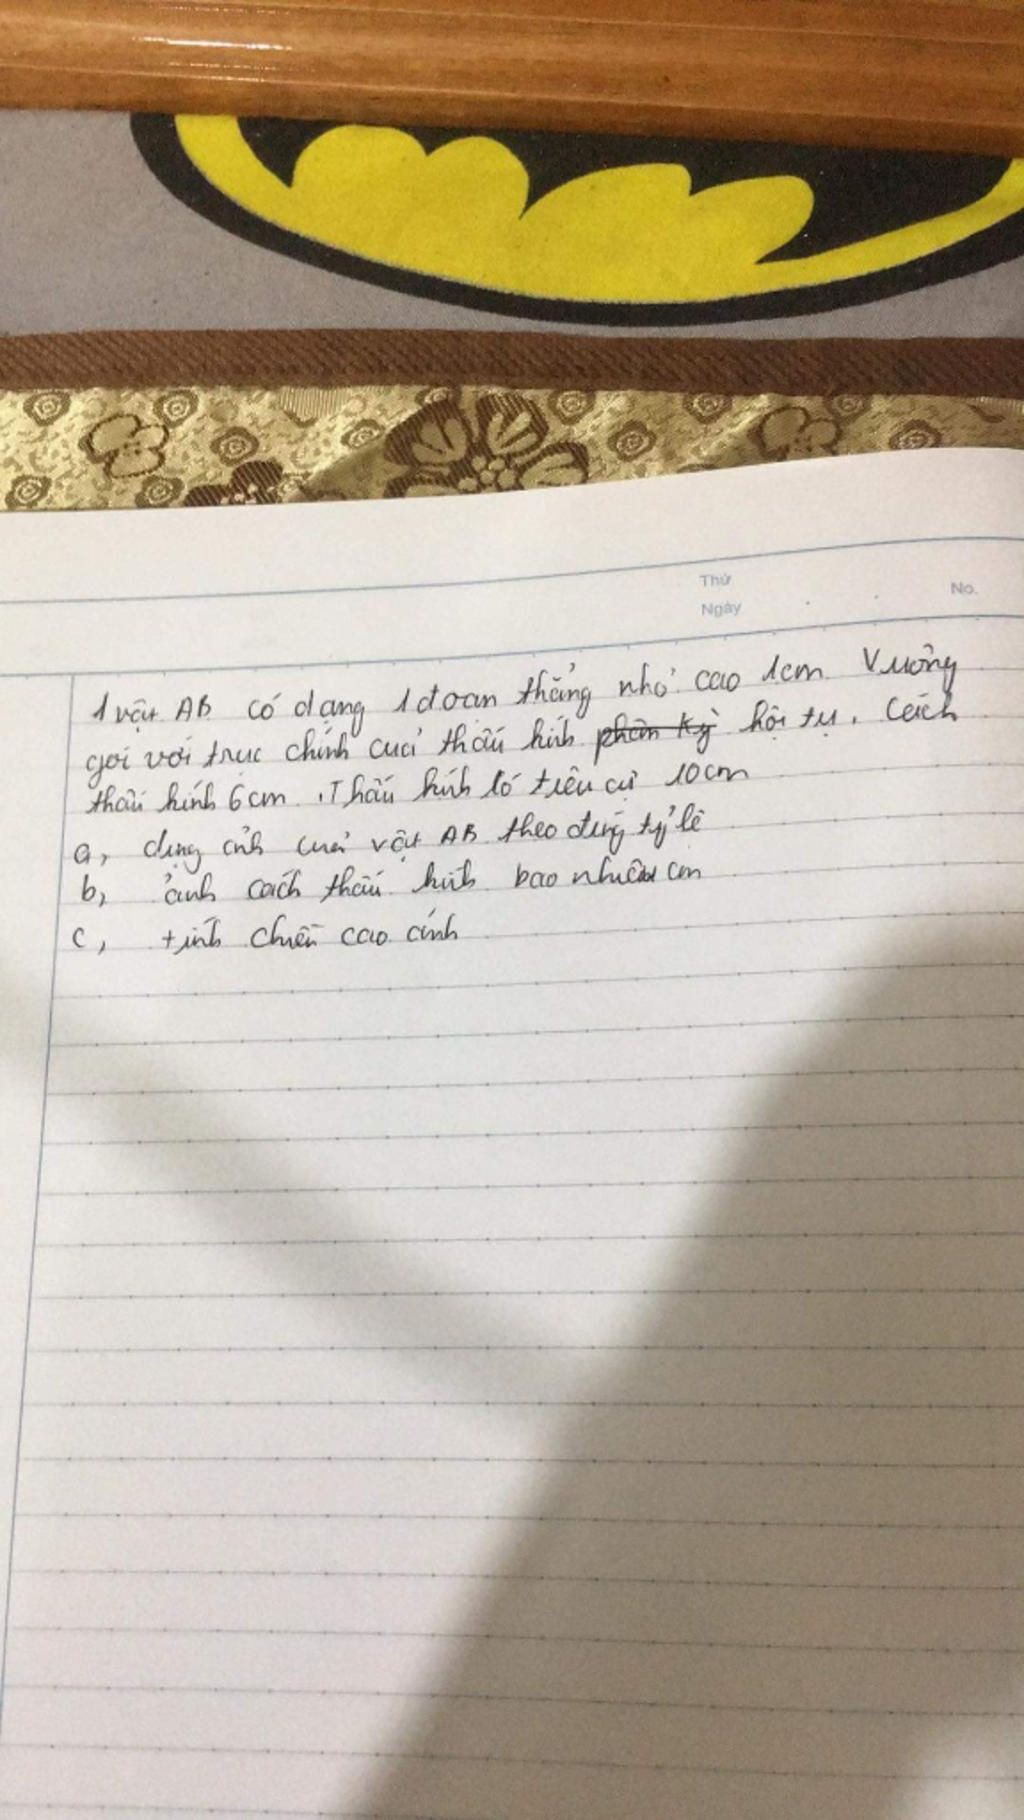 Thứ
Ngày
No.
1 vật AB có dạng 1 đoạn thẳng nhỏ cao 1cm Vuông
gói với trục chính cuả thấu kính phân kỳ hội tụ. Cách
thấu kính 6cm . Thấu kính có tiêu cự 10cm
a, dựng ảnh cuả vật AB theo đúng tỷ lệ
b, ảnh cách thấu kính bao nhiêu cm
c, tính chiều cao ảnh